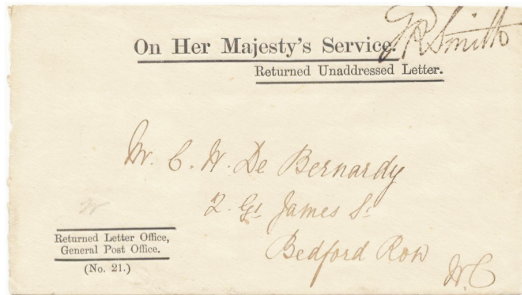 On Her Majesty's Service.
J R Smith
Returned Unaddressed Letter.
Mr. C. W. De Bernardy
2. Gt James St
Bedford Row
W.C
W
Returned Letter Office,
General Post Office.
(No. 21.)